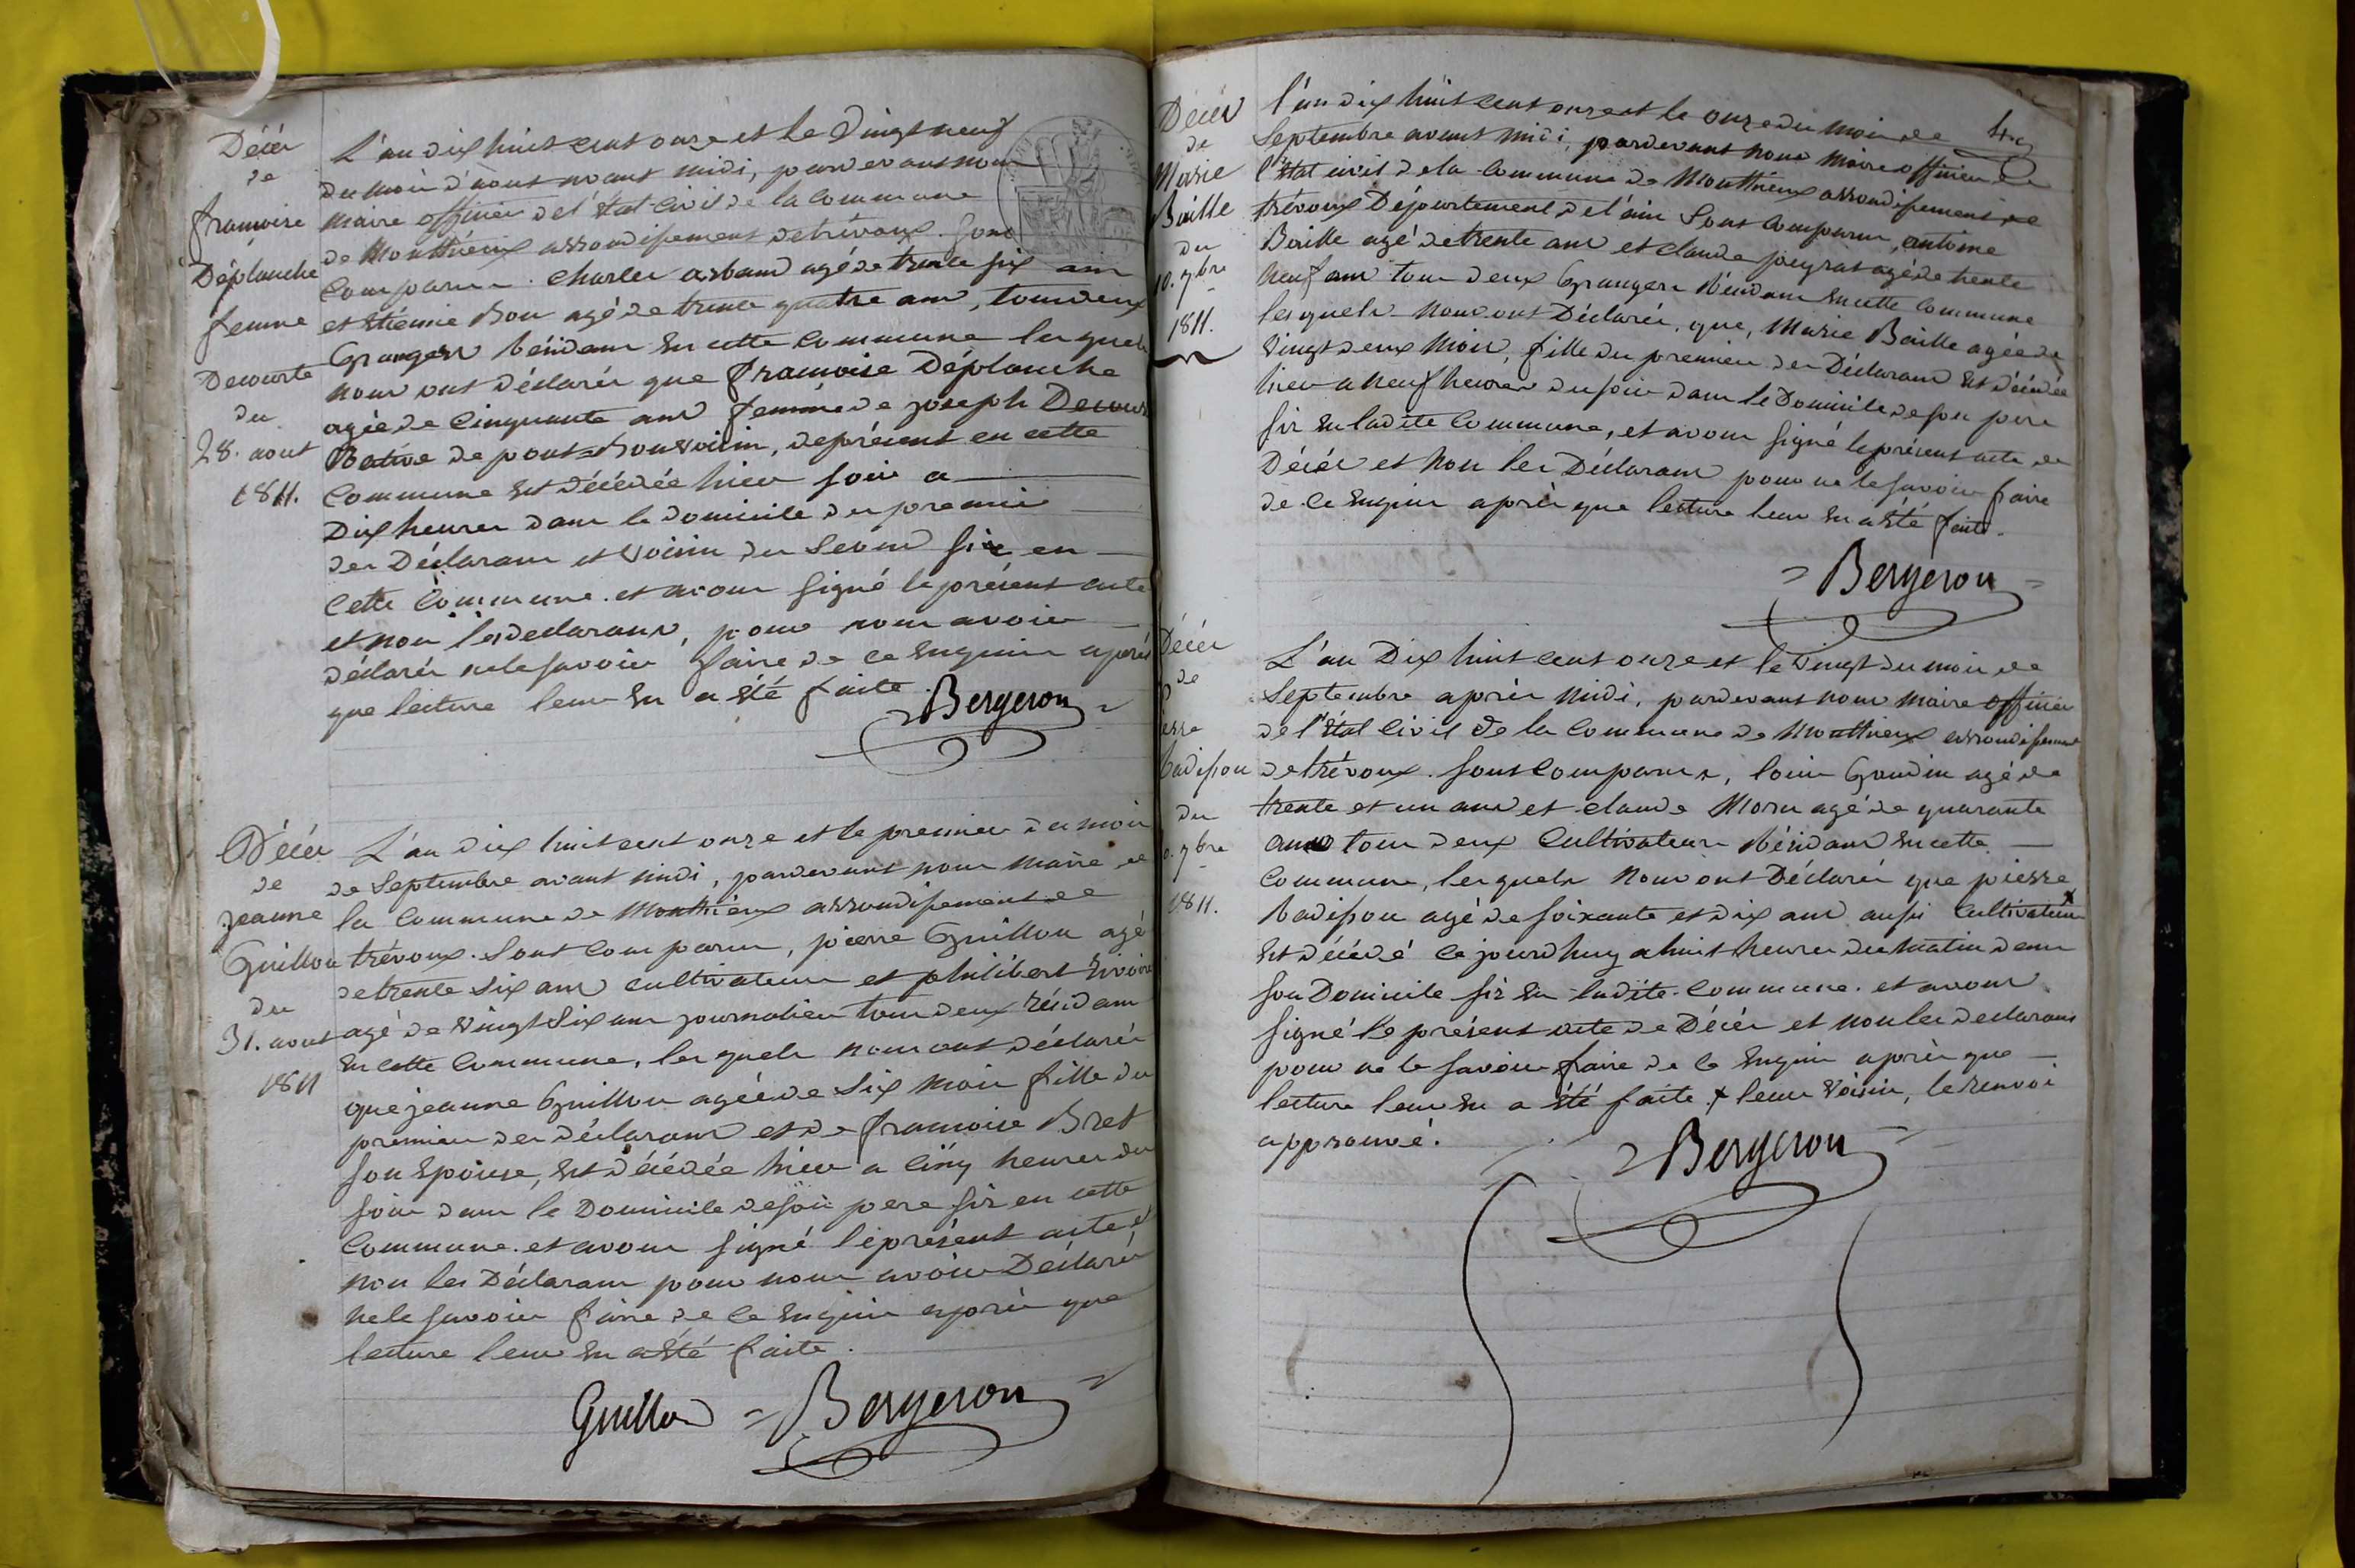 Décès
de
françoise
Déplanche
femme
Decourte
du
28. aout
1811.
L'an dix huit cent onze et le vingt neuf
du mois d'aout avant midi, pardevant nous
maire officier de l'état civil de la commune
de Monthieux arrondissement de trévoux. Sont
comparus. Charles arband agé de trente six ans
et étienne Bon agé de trente quatre ans, tous deux
Grangers résidans en cette commune lesquels
nous ont déclarés que françoise Déplanche
agée de cinquante ans femme de joseph
Native de pont=Bonvoisin, de présent en cette
commune est décédée hier soir a
Dix heures dans le domicile du premier
des Déclarans et voisin du second sis en
cette commune. et avons signé le présent acte
et non les declarans, pour nous avoir
déclarés ne le savoir faire de ce enquis après
que lecture leur en a été faite.
Bergeron
Décès
de
jeanne
Guillon
du
31. aout
1811
L'an dix huit cent onze et le premier du mois
de Septembre avant midi, pardevant nous maire de
la commune de Monthieux arrondissement de
trévoux. Sont comparus, pierre Guillon agé
de trente six ans cultivateur et philibert
agé de vingt six ans journalier tous deux résidans
en cette commune, lesquels nous ont déclarés
que jeanne Guillon agée de six mois fille du
premier des déclarans et de françoise Bret
son épouse, est décédée hier a cinq heures du
soir dans le Domicile de son pere sis en cette
commune. et avons signé le présent acte et
non les Déclarans pour nous avoir Déclarés
ne le savoir faire de ce enquis après que
lecture leur en a été faite.
Guillon = Bergeron
Décès
de
Marie
Baille
du
10. 7bre
1811.
L'an dix huit cent onze et le onze du mois de
Septembre avant midi, pardevant nous maire officier de
l'état civil de la commune de Monthieux arrondissement de
trévoux Département de l'ain Sont comparus, antoine
Baille agé de trente ans et claude peyrat agé de trente
neuf ans tous deux Grangers résidans en cette commune
lesquels nous ont Déclarés, que, Marie Baille agée de
vingt deux mois, fille du premier des Déclarans est décédée
hier a neuf heures du soir dans le Domicile de son pere
sis en ladite commune, et avons signé le présent acte de
Décès et non les Déclarans pour ne le savoir faire
de ce enquis après que lecture leur en a été faite.
= Bergeron =
Décès
de
du
7bre
1811.
L'an Dix huit cent onze et le vingt du mois de
Septembre après midi, pardevant nous maire officier
de l'état civil de la commune de Monthieux arrondissement
de trévoux. sont comparus, louis Gaudin agé de
trente et un ans et claude Moru agé de quarante
ans tous deux cultivateurs résidans en cette
commune, lesquels nous ont Déclarés que pierre
radisson agé de soixante et dix ans aussi cultivateur x
est décédé ce jourd'huy a huit heures du matin dans
son Domicile sis en ladite commune. et avons
signé le présent acte de Décès et non les declarans
pour ne le savoir faire de ce enquis après que
lecture leur en a été faite. x leur voisin, le renvoi
approuvé.
= Bergeron =